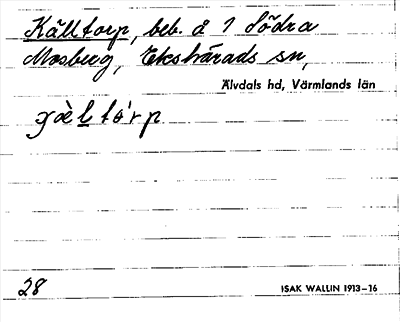 Källtorp, beb. å 1 Södra
Mosberg, Ekshärads sn,
Älvdals hd, Värmlands län
28
ISAK WALLIN 1913–16